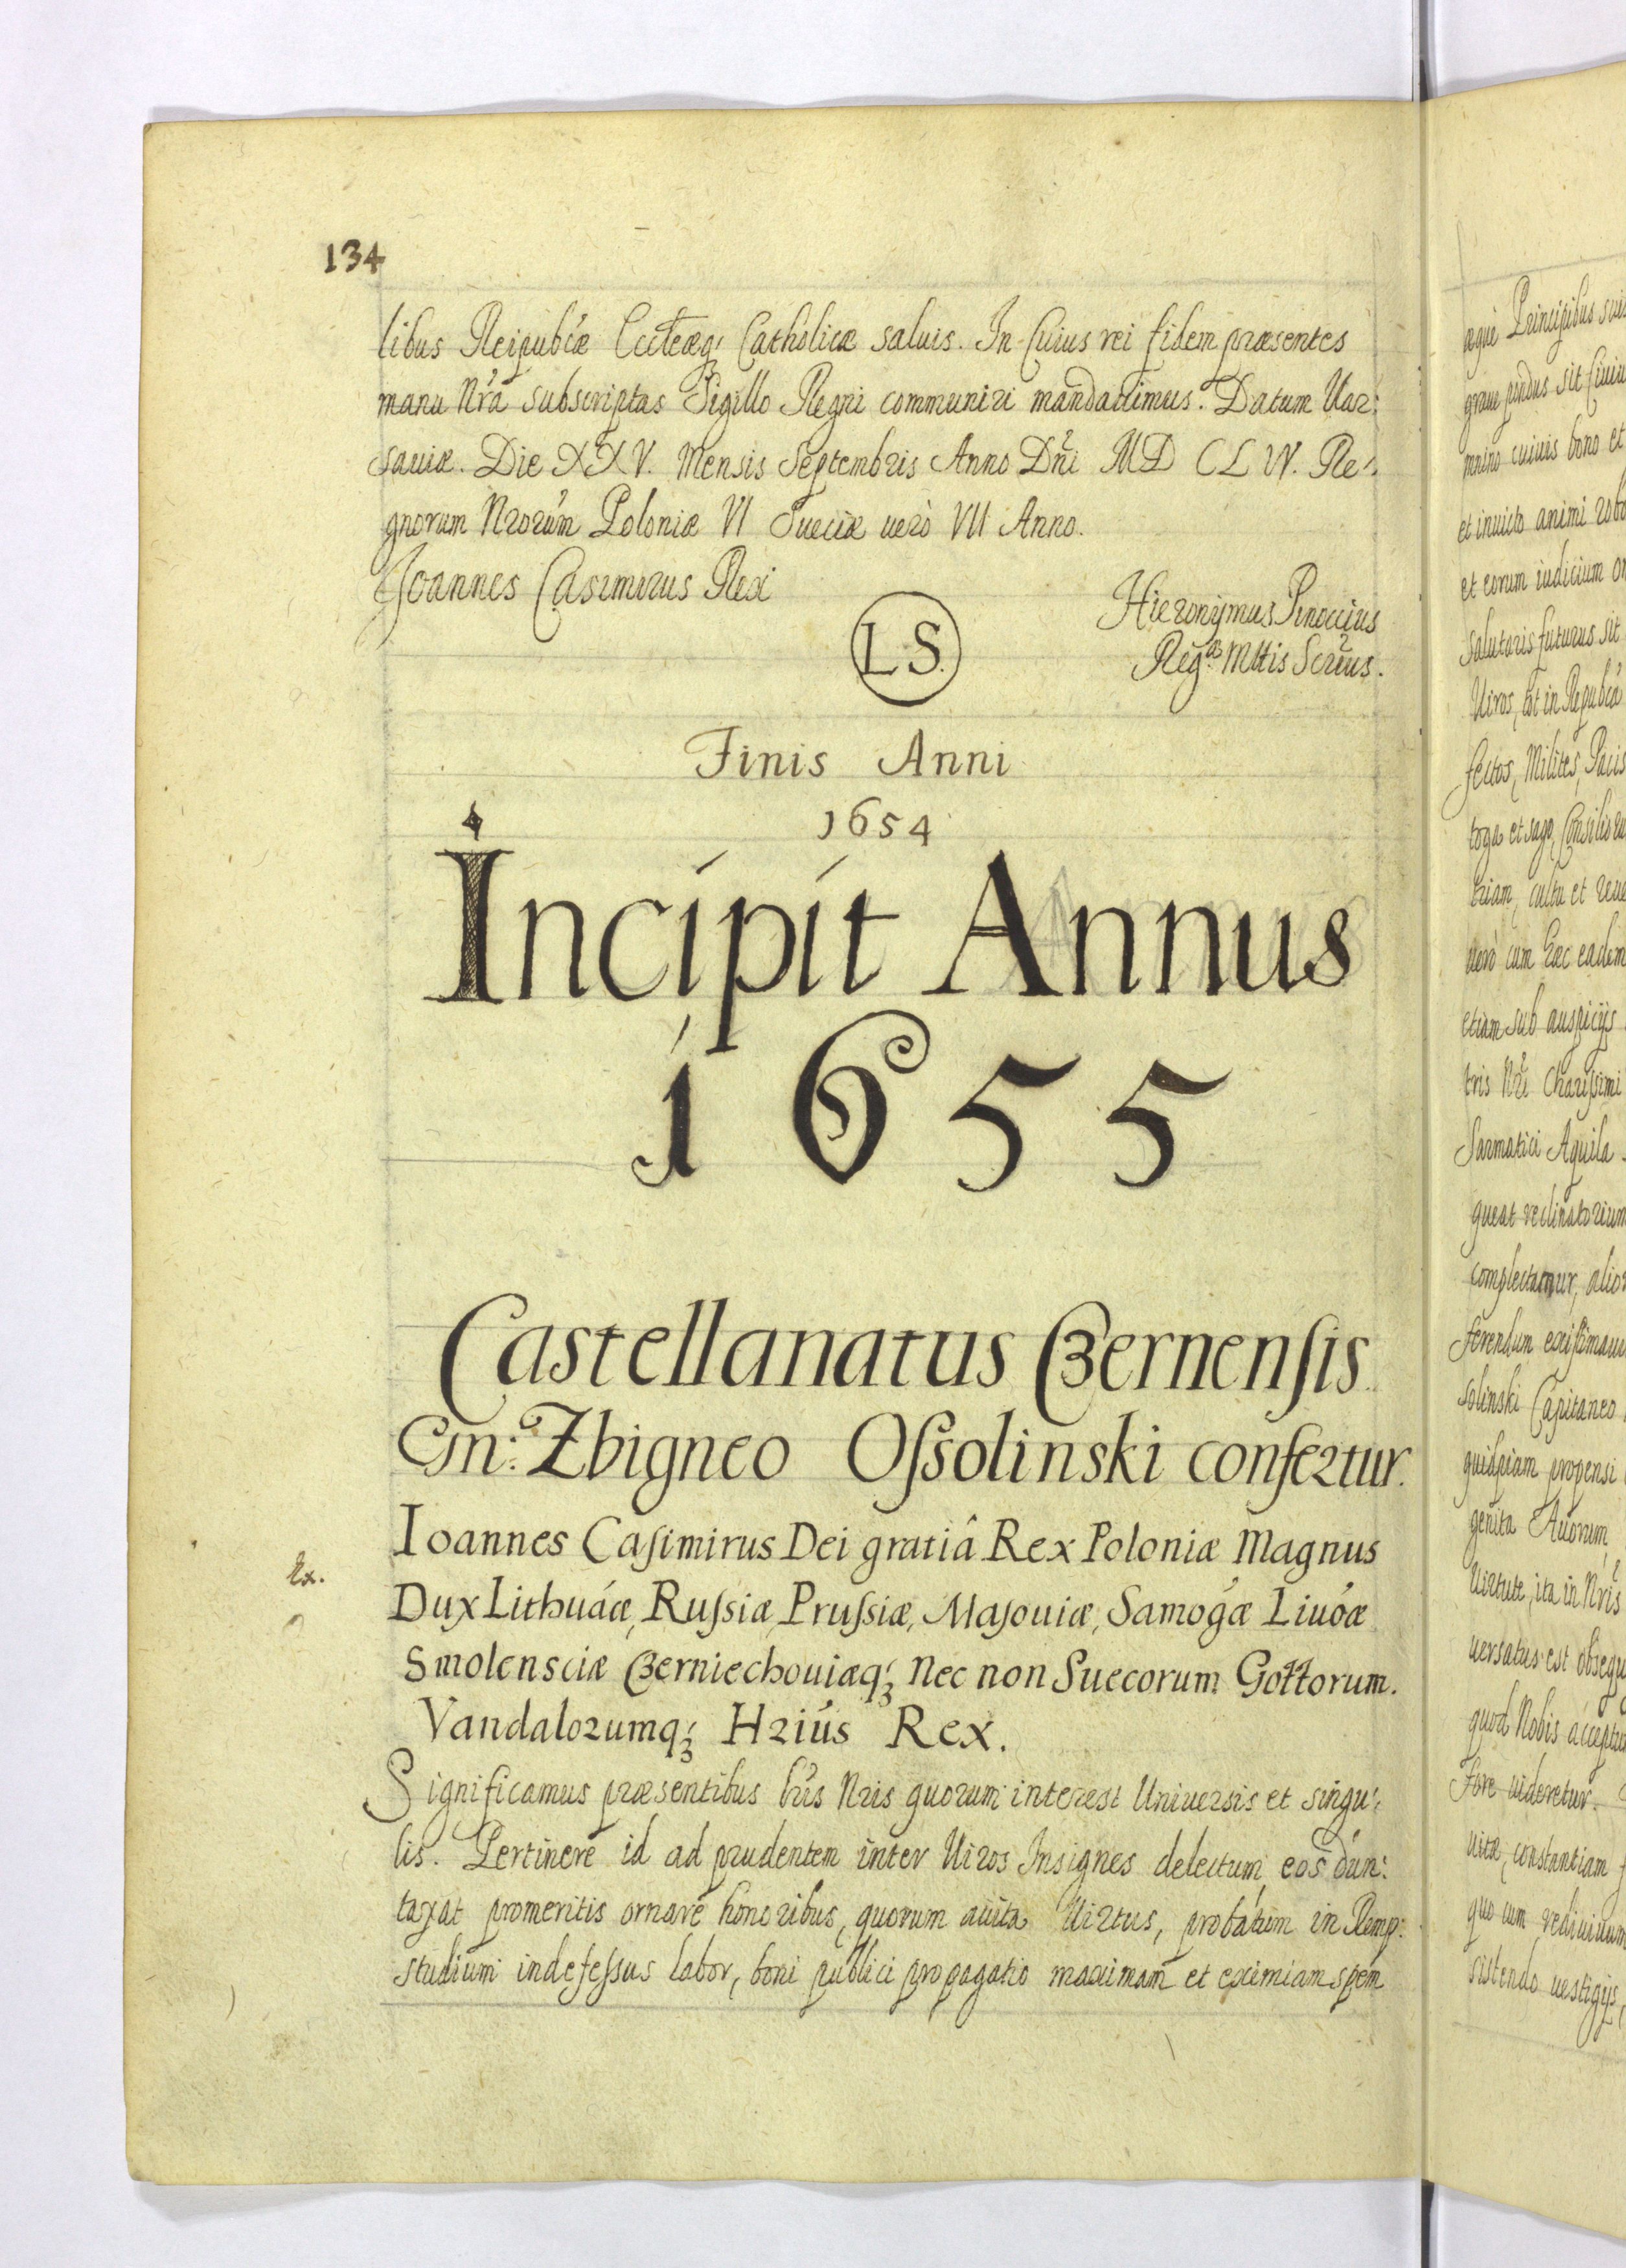 134
libus Reipubĺæ Eccleæq; Catholicæ saluis. In Cuius rei fidem præsentes
manu Nrá subscriptas Sigillo Regni communiri mandauimus. Datum Uar:
sauiæ. Die XXV. Mensis Septembris Anno Dni MD CLIV. Re:
gnorum Nrorum Poloniæ VI Sueciæ uerò VII Anno.
Joannes Casimirus Rex
L.S.
Hieronymus Pinoccius
Reg. Mttis Scrius.
Finis Anni
1654
Incipit Annus
1655
Castellanatus Czernensis
Gn: Zbigneo Ossolinski confertur.
Ioannes Casimirus Dei gratiâ Rex Poloniæ Magnus
Ex.
Dux Lithuáæ, Russiæ, Prussiæ, Masouiæ, Samogæ Liuóæ
Smolensciæ Czerniechouiæq; Nec non Suecorum Gottorum.
Vandalorumq; Hriús Rex.
Significamus præsentibus lris Nris quorum interest Uniuersis et singu:
lis. Pertinere id ad prudentem inter Uiros Insignes delectum, eos dun:
taxat promeritis ornare honoribus, quorum auita Uirtus, probatum in Remp:
studium indefessus labor, boni publici propagatio maximam et eximiam spem
aquè Principibus suis
graue pondus sit Ciuiu
mnino cuiuis bono et
et inuicto animi robo
et eorum iudicium or
salutaris futurus sit
Uiros, tot in Republca
fectos, Milites, Pacis
toga et sago, Consilio
triam, cultu et reue
uerò cum hæc eadem
etiam sub auspicijs
tris Nri Charissimi
Sarmatici Aquila
queat reclinatorium
complectamur, alior
ferendum existimaui
solinski Capitaneo
quidpiam propensi
genita Auorum
Uirtute, ita in Nris
uersatus est obsequ
quod Nobis acceptu
Fore uideretur.
uitæ, constantiam
quo cum rediuiuum
sistendo uestigijs,